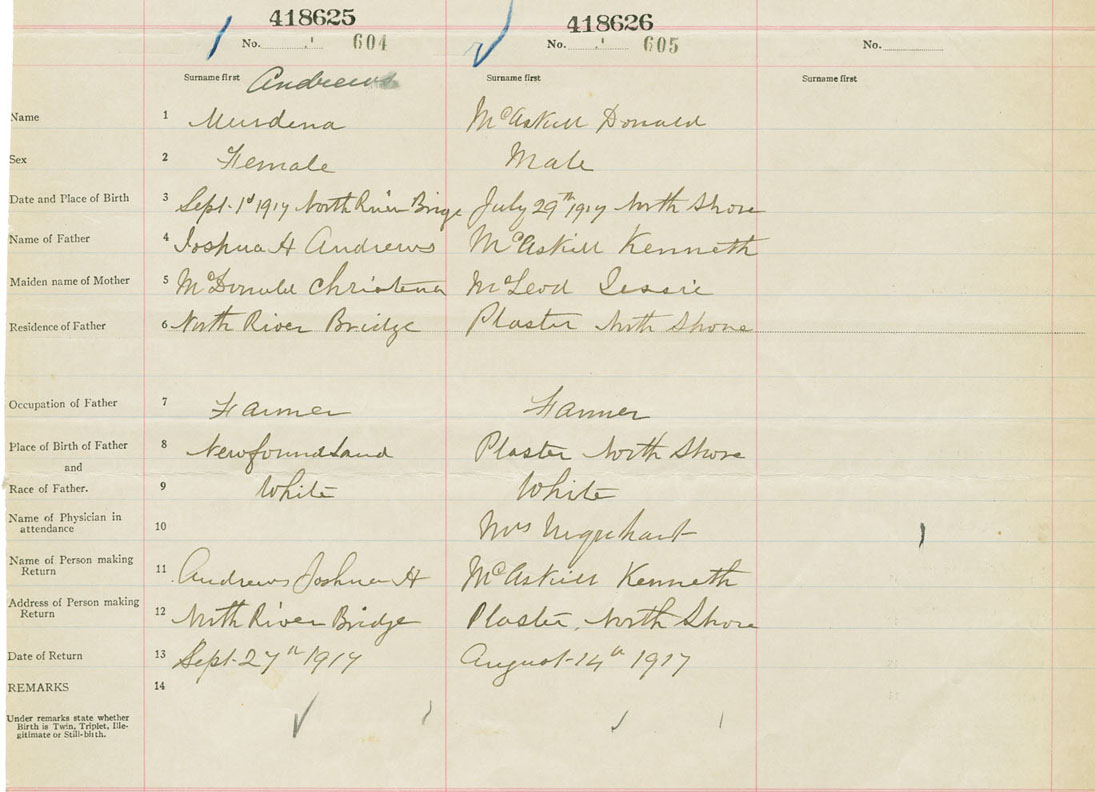 418625 418626
No. 604 No. 605 No.
Surname first Andrews Surname first Surname first
Name 1 Murdena McAskill Donald
Sex 2 Female Male
Date and Place of Birth 3 Sept. 1st 1917 North River Brige July 29th 1917 North Shore
Name of Father 4 Joshua H Andrews McAskill Kenneth
Maiden name of Mother 5 McDonald Christena McLeod Jessie
Residence of Father 6 North River Bridge Plaster North Shore
Occupation of Father 7 Farmer Farmer
Place of Birth of Father 8 Newfoundland Plaster North Shore
and
Race of Father. 9 White White
Name of Physician in
attendance 10 Mrs Urquhart
Name of Person making
Return 11 Andrews Joshua H McAskill Kenneth
Address of Person making
Return 12 North River Bridge Plaster, North Shore
Date of Return 13 Sept. 27th 1917 August 14th 1917
REMARKS 14
Under remarks state whether
Birth is Twin, Triplet, Ille-
gitimate or Still-birth.